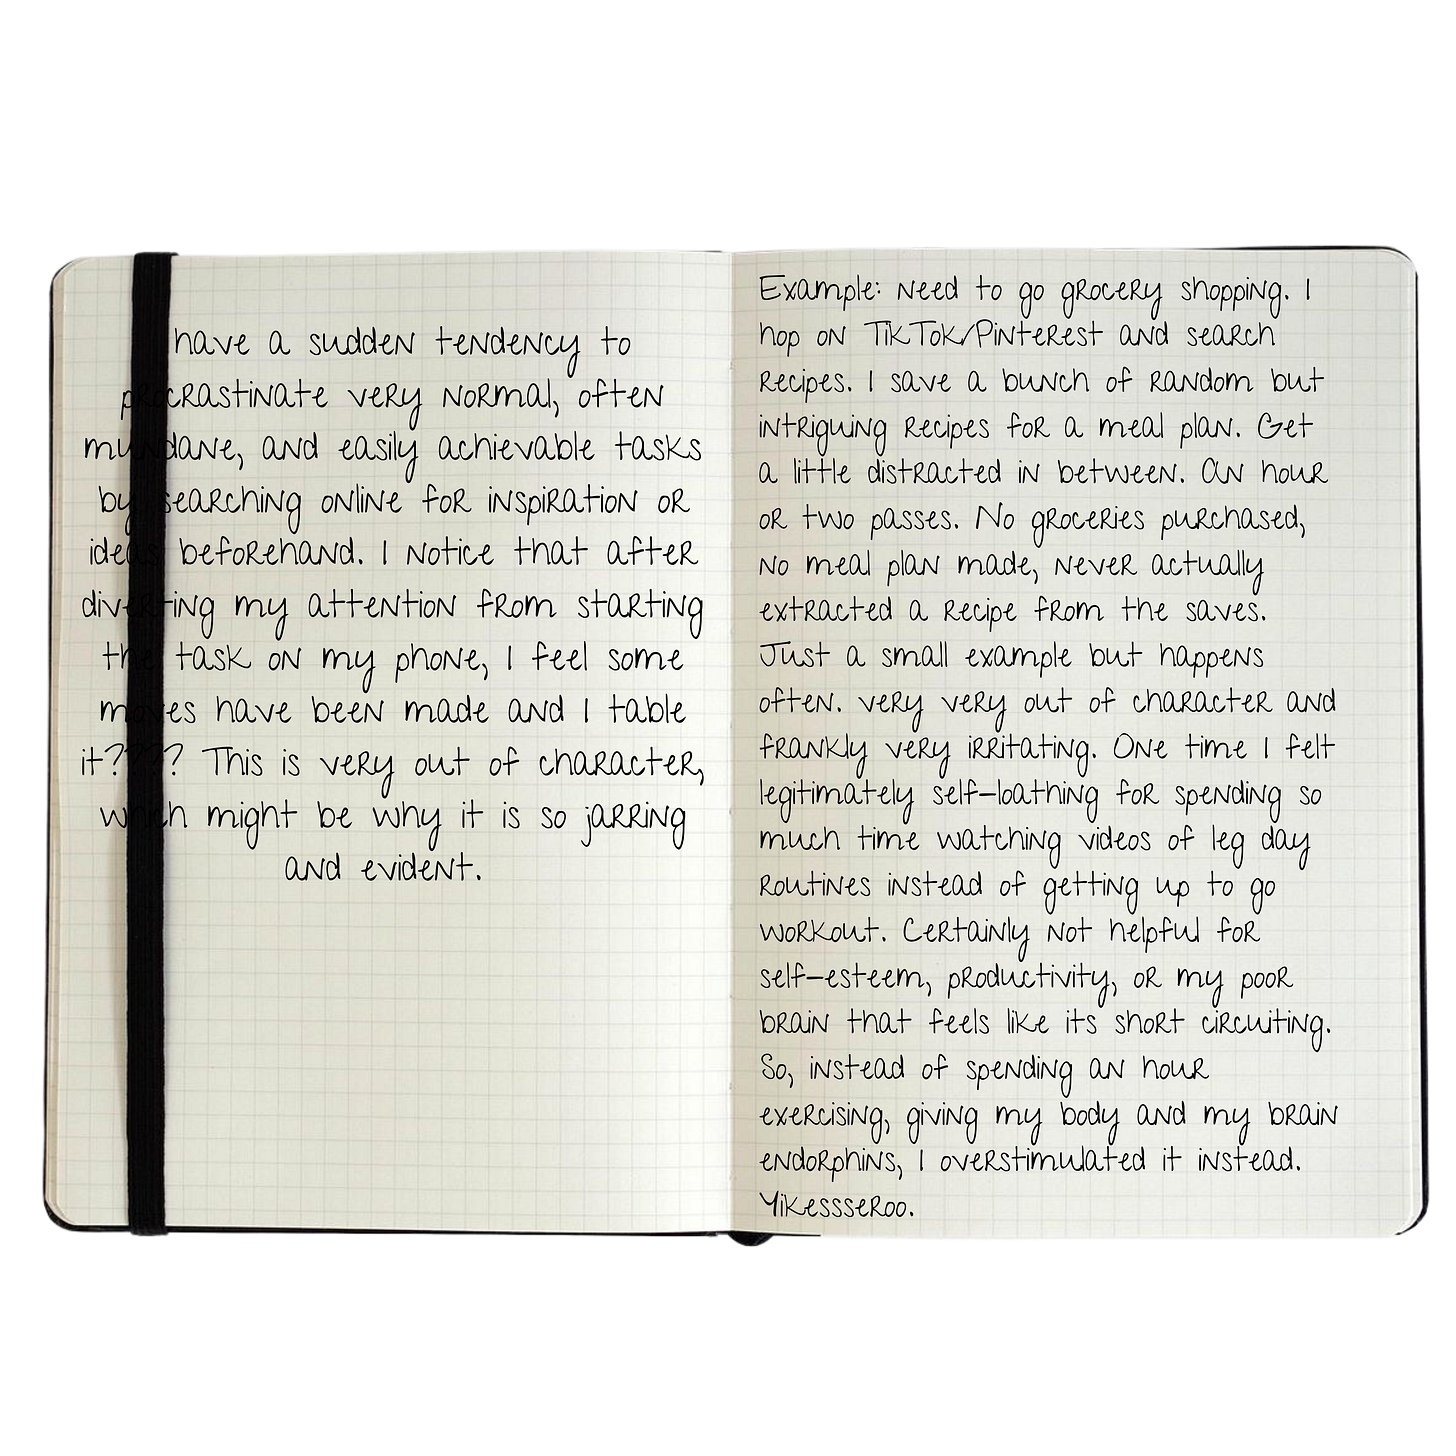 have a sudden tendency to
procrastinate very normal, often
mundane, and easily achievable tasks
by searching online for inspiration or
ideas beforehand. I notice that after
diverting my attention from starting
the task on my phone, I feel some
moves have been made and I table
it???? This is very out of character,
which might be why it is so jarring
and evident.
Example: need to go grocery shopping. I
hop on TikTok/Pinterest and search
recipes. I save a bunch of random but
intriguing recipes for a meal plan. Get
a little distracted in between. An hour
or two passes. No groceries purchased,
no meal plan made, never actually
extracted a recipe from the saves.
Just a small example but happens
often. very very out of character and
frankly very irritating. One time I felt
legitimately self-loathing for spending so
much time watching videos of leg day
routines instead of getting up to go
workout. Certainly not helpful for
self-esteem, productivity, or my poor
brain that feels like its short circuiting.
So, instead of spending an hour
exercising, giving my body and my brain
endorphins, I overstimulated it instead.
Yikessseroo.